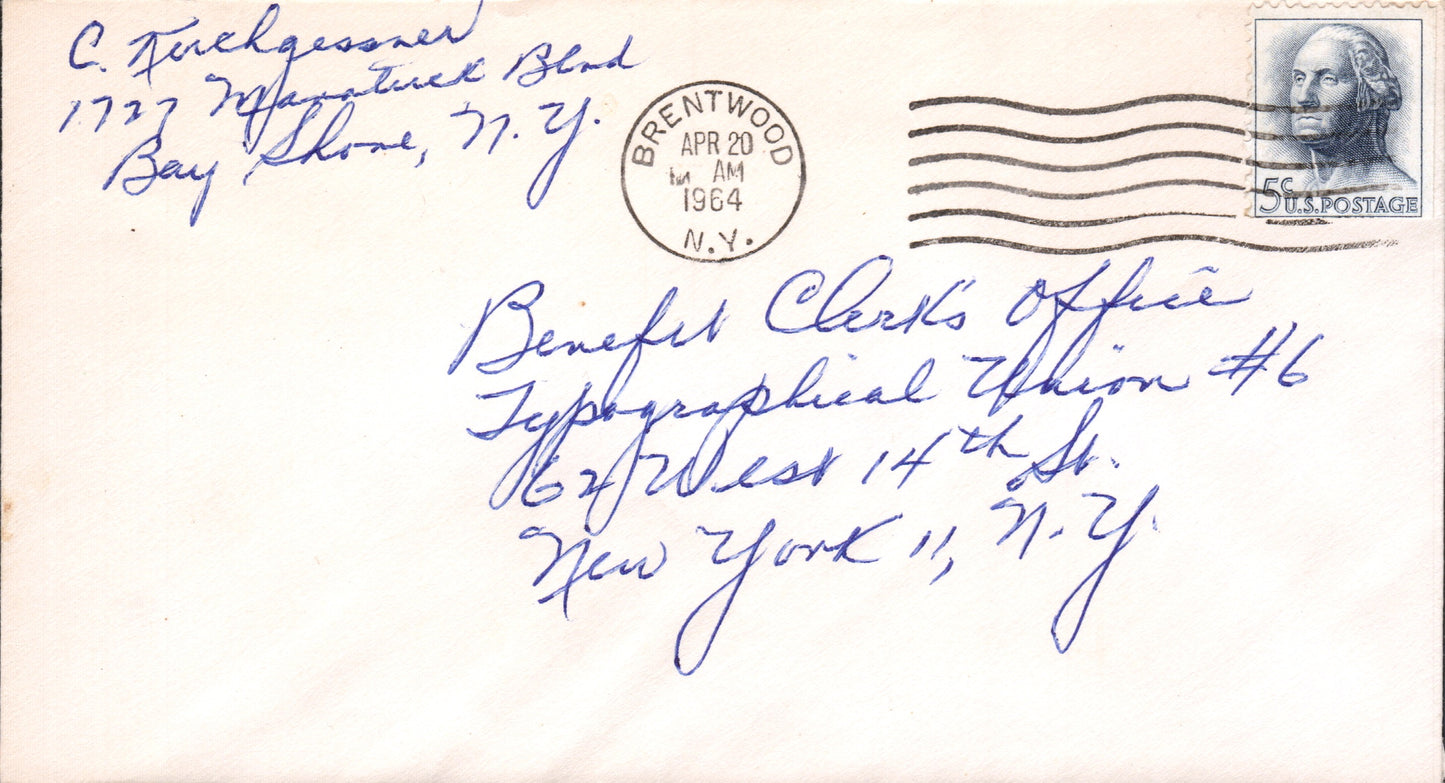 C. Kirchgessner
1727 Manatuck Blvd
Bay Shore, N.Y.
BRENTWOOD
APR 20
AM
1964
N.Y.
5c
U.S. POSTAGE
Benefit Clerk's Office
Typographical Union #6
62 West 14th St.
New York 11, N.Y.